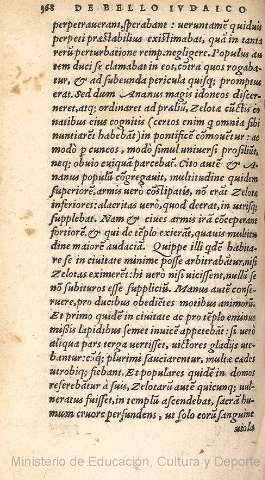 368 DE BELLO IVDAICO
perpetrauerant, sperabant: ueruntamẽ quiduis
perpeti præstabilius existimabat, quã in tanta
rerũ perturbatione remp. negligere. Populus au
tem duci se clamabat in eos, cõtra quos rogaba
tur, & ad subeunda pericula quisq; promptus
erat. Sed dum Ananus magis idoneos discer-
neret, atq; ordinaret ad præliũ, Zelotæ cũctis co
natibus eius cognitis (certos enim q omnia sibi
nuntiarẽt habebãt) in pontificẽ cõmouẽtur: ac
modò p cuneos, modò simul universi prosiliũt,
neq; obuio cuiquã parcebãt. Cito autẽ &
Ananus populũ cõgregauit, multitudine quidem
superiorẽ, armis verò cõstipatis, nõ erãt Zelotæ
inferiores: alacritas uerò, quod deerat, in utrisq;
supplebat. Nam & ciues armis irã cõceperant
fortiorẽ, & qui de tẽplo exierãt, quauis multitu
dine maiorẽ audaciã. Quippe illi qdẽ habita-
re se in ciuitate minimè posse arbitrabãtur, nisi
Zelotas eximerẽt: hi uerò nisi uicissent, nullũ se
nõ subituros esse suppliciũ. Manus autẽ conse-
ruere, pro ducibus obedietes motibus animorũ.
Et primò quidẽ in ciuitate ac pro tẽplo eminus
missis lapidibus semet inuicẽ appetebãt: si uerò
aliqua pars terga uertisset, uictores gladijs ute
bantur: cũq; plurimi sauciarentur, multæ cædes
utrobiq; fiebant. Et populares quidẽ in domos
referebãtur à suis, Zelotarũ autẽ quicunq; uul-
neratus fuisset, in templũ ascendebat, sacrã hu-
mum cruore perfundens, ut solo eorũ sanguine
uiola
Ministerio de Educación, Cultura y Deporte